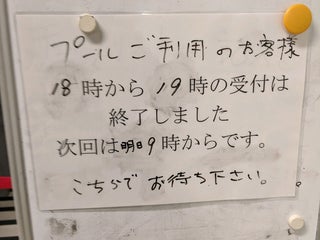 プールご利用のお客様
18時から19時の受付は
終了しました
次回は明日9時からです。
こちらでお待ち下さい。